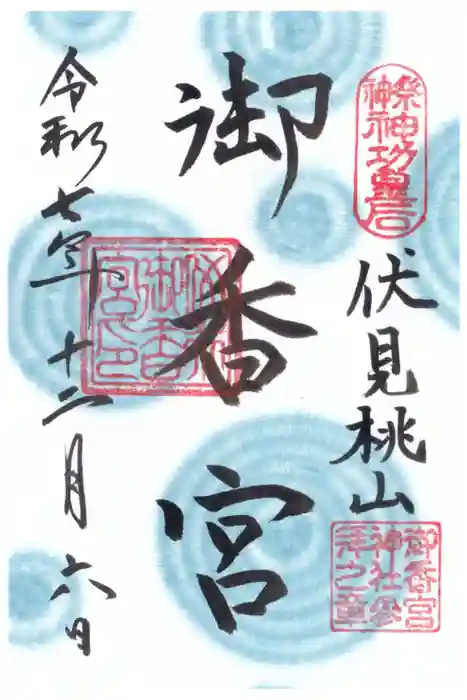 祭神
神功皇后
伏見桃山
御香宮
神社参
拝之章
御香宮
令和七年十二月六日